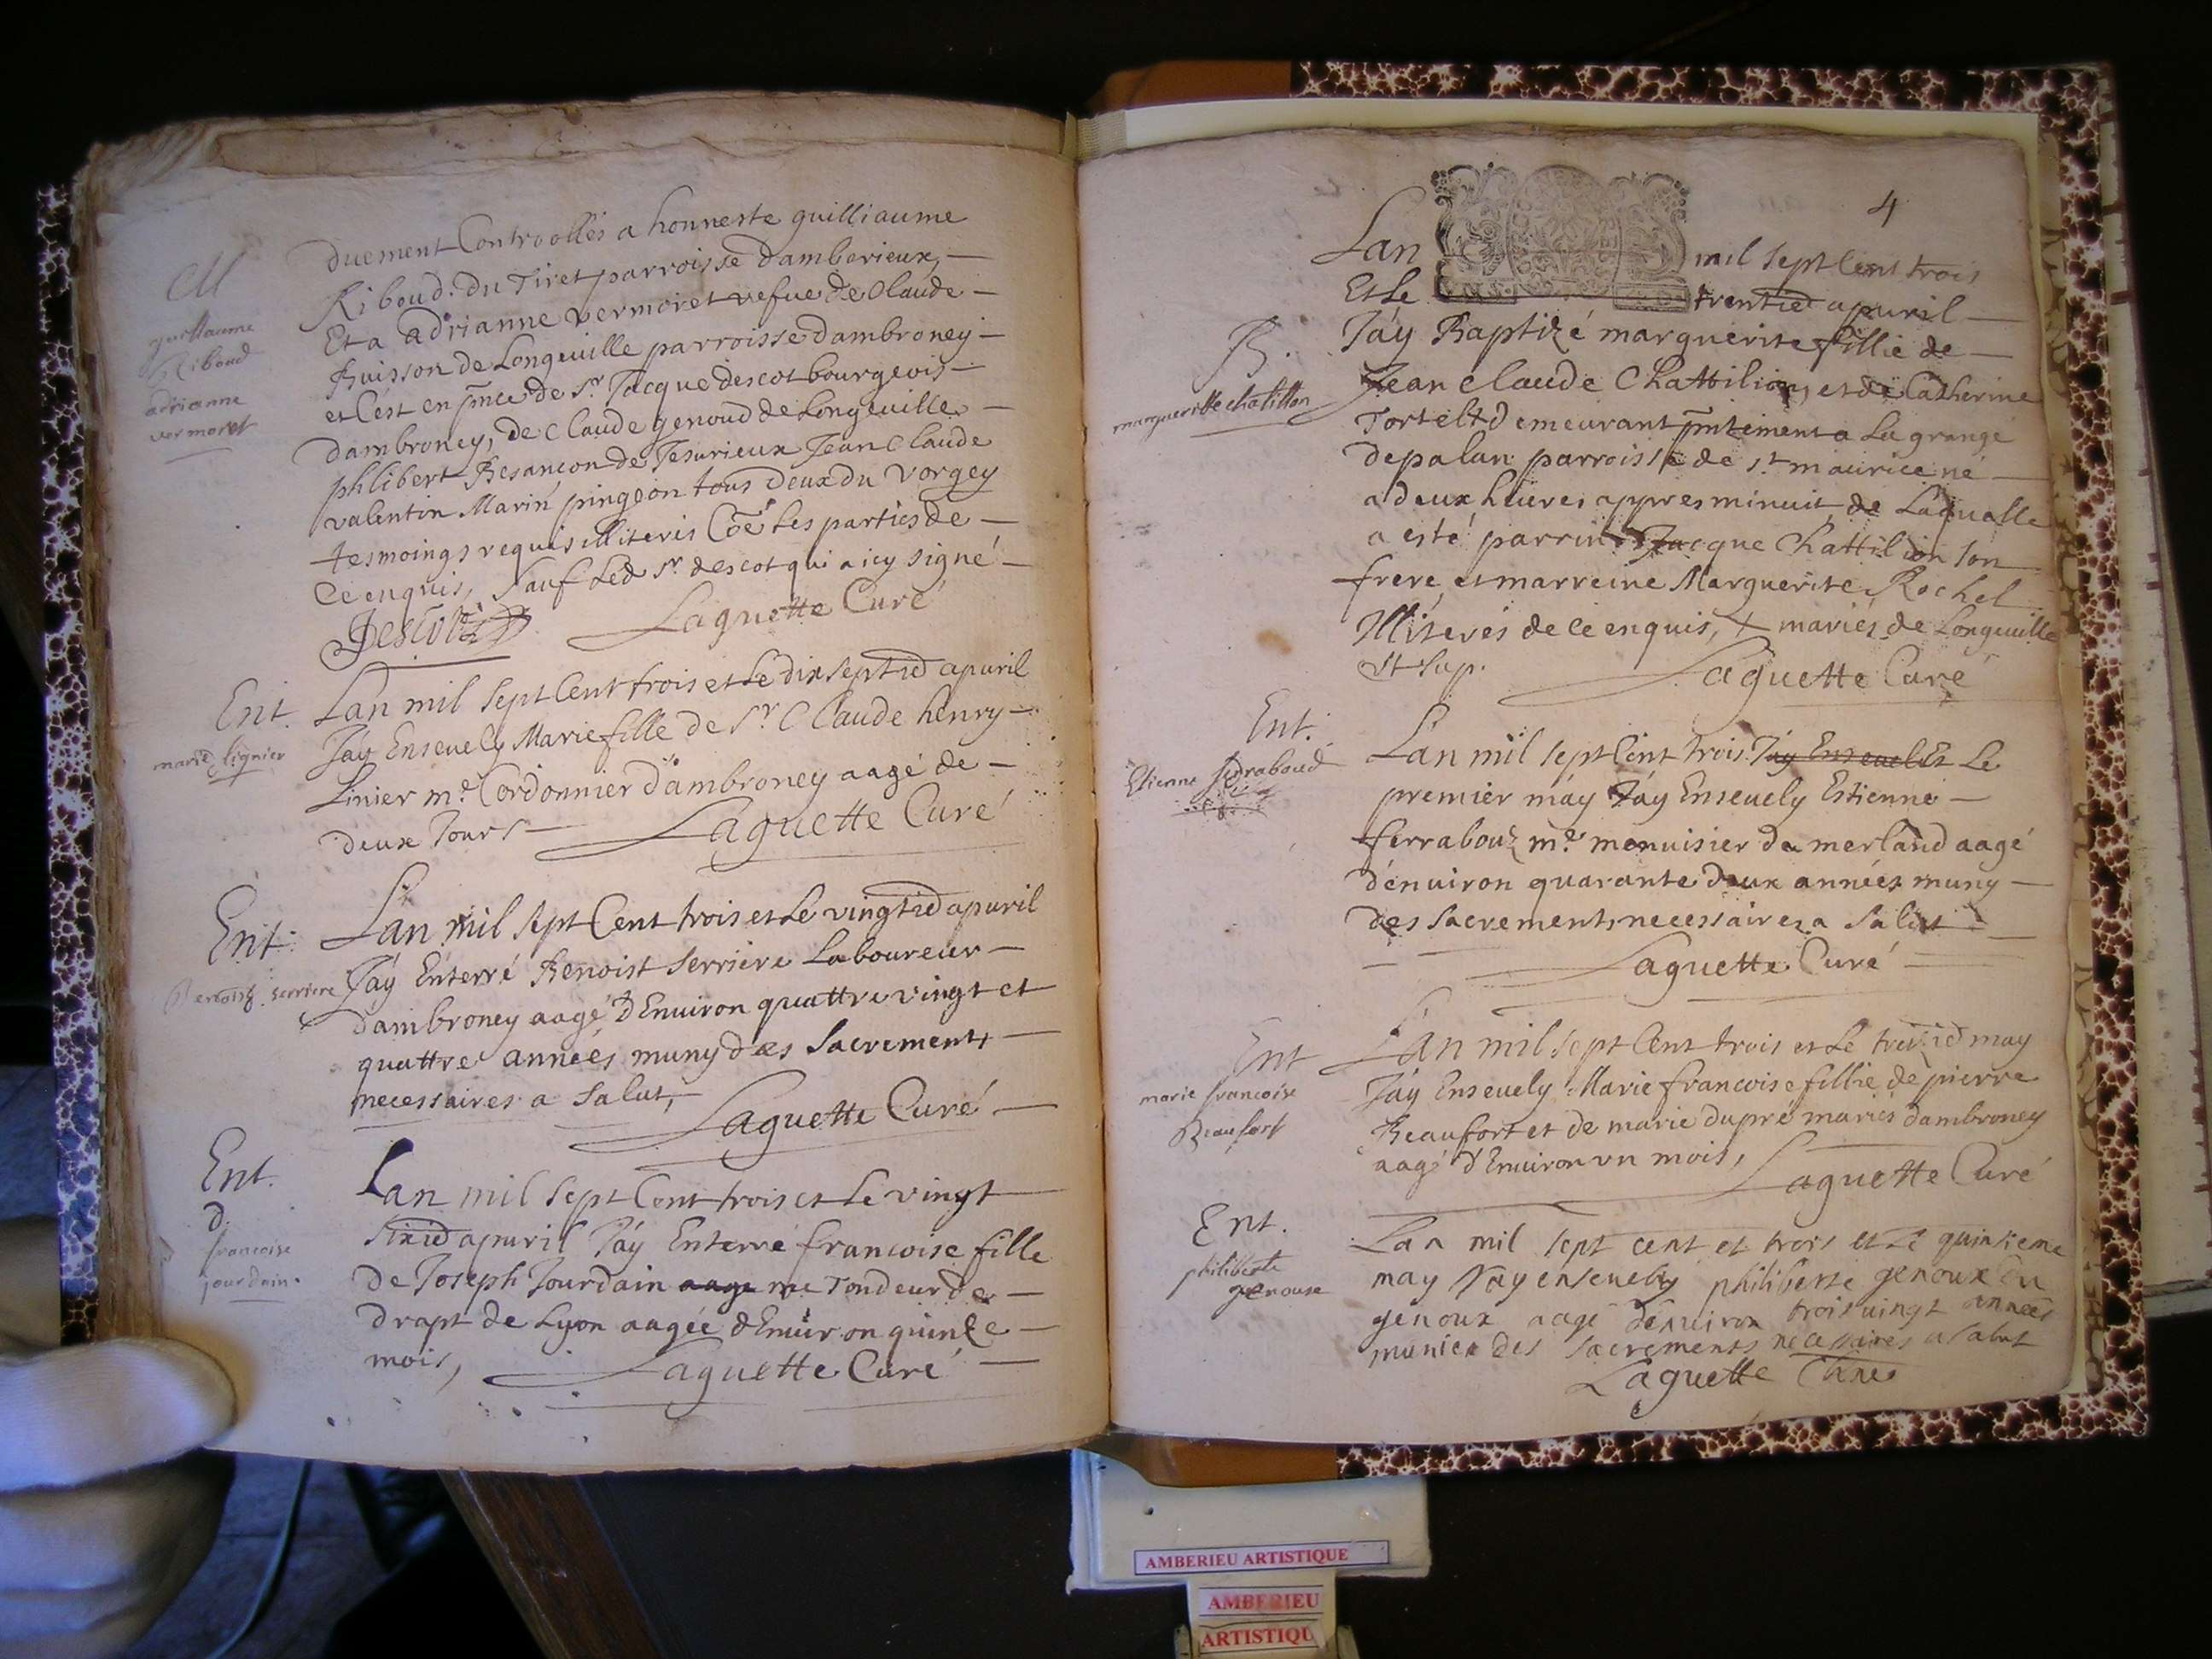 M
guillaume
Riboud
adrianne
vermoret
duement Controollés a honneste guilliaume
Riboud. du Tiret parroisse damberieux, —
Et a adrianne vermoret vefue de Claude —
Buisson de Longeuille parroisse dambroney —
et Cest en pnce de Sr. Jacque descot bourgeois —
dambroney, de Claude genoud de Longeuille —
philibert Besançon de Jesurieux Jean Claude
valentin Marin pingeon tous deux du vorgey
tesmoings requis illiteris Coe les parties de —
Ce enquis, Sauf Led Sr. descot qui a icy signé —
Descot Laguette Curé
Ent.
marie lignier
Lan mil Sept Cent trois et Le dix septie apuril
Jáy Enseuely Marie fille de Sr. Claude henry —
Linier me. Cordonnier dambroney aagé de —
deux Jours — Laguette Curé
Ent.
Benoist serriere
Lan mil sept Cent trois et Le vingtie apuril
Jáy Enterré Benoist Serriere Laboureur —
dambroney aagé dEnuiron quattre vingt et
quattre années muny des Sacrements —
necessaires a Salut, —
Laguette Curé —
Ent.
d.
francoise
jourdain.
Lan mil sept Cent trois et Le vingt
sixie apuril Jáy Enterré francoise fille
de Joseph Jourdain aage me Tondeur de —
drapt de Lyon aagée dEnuiron quinze —
mois, Laguette Curé —
4
B.
margueritte chatillon
Lan mil sept Cent trois
Et Le trentie apuril —
Jáy Baptizé marguerite fillie de —
Jean Claude Chattilion, et de Catherine
Tortelt demeurant pntement a La grange
de palan parroisse de st maurice né —
a deux heures appres minuit de Laqualle
a esté parrin Jacque Chattilion son
frere, et marreine Marguerite Rochel
Illiterés de ce enquis, + mariés de Longeuille
st sup. Laguette Curé
Ent.
Etienne feraboud
Lan mil sept Cent trois Jáy Enseueli Et Le
premier máy Jáy Enseuely Estienne —
ferrabouz me. menuisier de merland aagé
dénuiron quarante deux années muny —
des Sacrements necessaires a Salut —
Laguette Curé —
Ent
marie francoise
Beaufort
Lan mil sept Cent trois et Le treizie may
Jáy Enseuely Marie francoise fillie de pierre
Beaufort et de marie dupré mariés dambroney
aagé dEnuiron un mois,
Laguette Curé
Ent.
philiberte
genouse
Lan mil sept cent et trois et Le quinsieme
may Jay enseuely philiberte genoux ou
genoux aagé denuiron trois vingt années
muniee des sacrements necessaires a salut
Laguette Cure
AMBERIEU ARTISTIQUE
AMBERIEU
ARTISTIQU